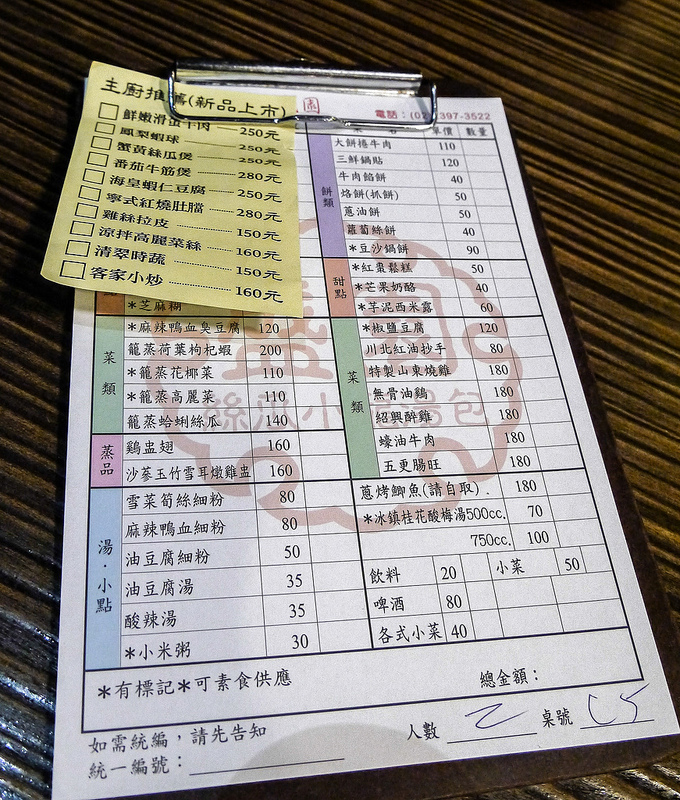 主廚推薦(新品上市)
鮮嫩滑蛋牛肉 250元
鳳梨蝦球 250元
蟹黃絲瓜煲 250元
番茄牛筋煲 280元
海皇蝦仁豆腐 250元
寧式紅燒肚膛 280元
雞絲拉皮 150元
涼拌高麗菜絲 160元
清翠時蔬 150元
客家小炒 160元
園
電話：(02)397-3522
單價 數量
餅類
大餅捲牛肉 110
三鮮鍋貼 120
牛肉餡餅 40
烙餅(抓餅) 50
蔥油餅 50
蘿蔔絲餅 40
*豆沙鍋餅 90
甜點
*紅棗鬆糕 50
*芒果奶酪 40
*芋泥西米露 60
*芝麻糊
菜類
*麻辣鴨血臭豆腐 120
籠蒸荷葉枸杞蝦 200
*籠蒸花椰菜 110
*籠蒸高麗菜 110
籠蒸蛤蜊絲瓜 140
蒸品
雞盅翅 160
沙蔘玉竹雪耳燉雞盅 160
湯·小點
雪菜筍絲細粉 80
麻辣鴨血細粉 80
油豆腐細粉 50
油豆腐湯 35
酸辣湯 35
*小米粥 30
菜類
*椒鹽豆腐 120
川北紅油抄手 80
特製山東燒雞 180
無骨油鷄 180
紹興醉雞 180
蠔油牛肉 180
五更腸旺 180
蔥烤鯽魚(請自取). 180
*冰鎮桂花酸梅湯500cc. 70
750cc. 100
飲料 20 小菜 50
啤酒 80
各式小菜 40
*有標記*可素食供應
總金額：
如需統編，請先告知
統一編號：
人數 2 桌號 C5